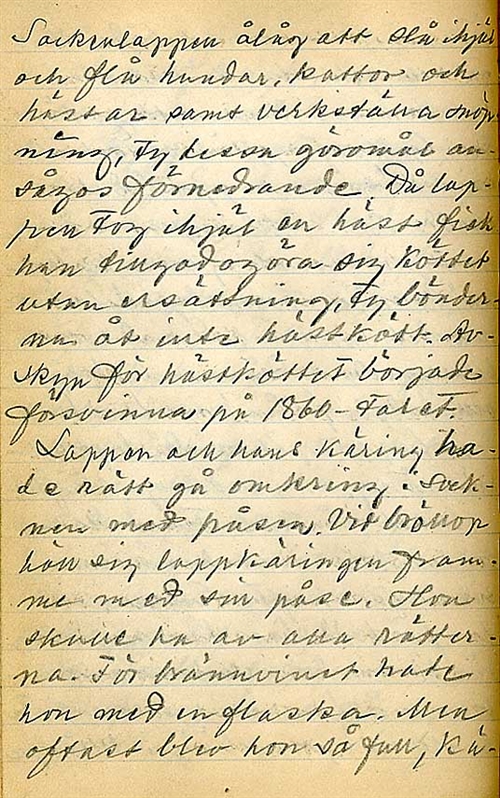 Sockenlappen ålåg att slå ihjäl
och flå hundar, kattor och
hästar samt verkställa snöp-
ning, ty dessa göromål an-
sågos förnedrande. Då lap-
pen tog ihjäl en häst fick
han tillgodogöra sig köttet
utan ersättning, ty bönder-
na åt inte hästkött. Av-
skyn för hästköttet började
försvinna på 1860-talet.
Lappen och hans käring ha-
de rätt gå omkring i sock-
nen med påsen. Vid bröllop
höll sig lappkäringen fram-
me med sin påse. Hon
skulle ha av alla rätter-
na. För brännvinet hade
hon med en flaska. Men
oftast blev hon så full, kä-